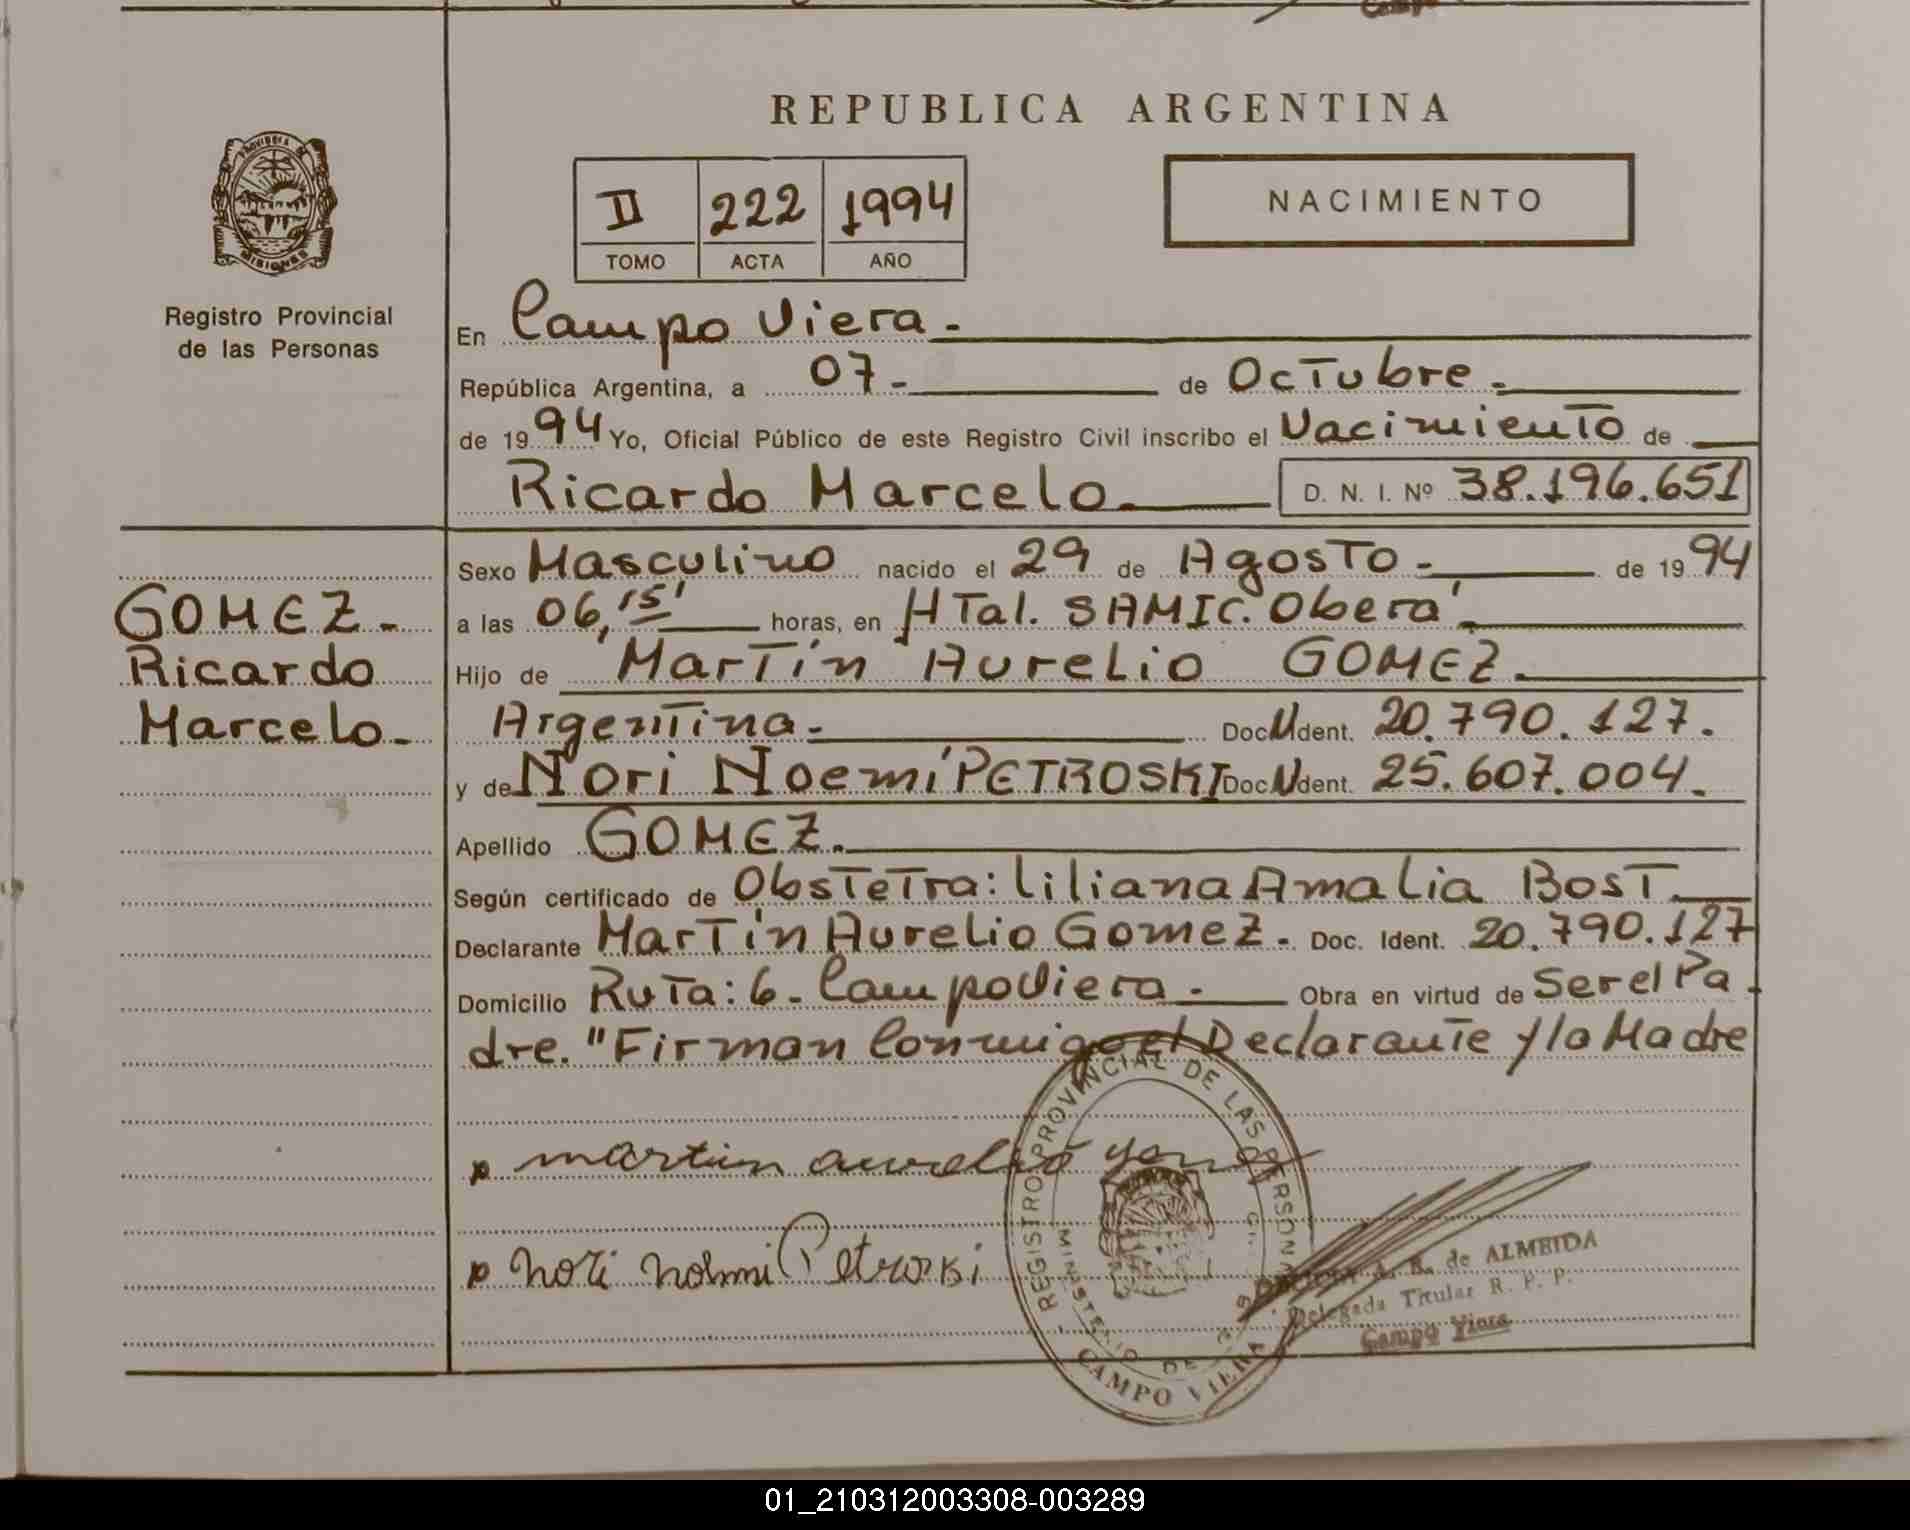 REPUBLICA ARGENTINA
PROVINCIA DE
MISIONES
Registro Provincial
de las Personas
II 222 1994
TOMO ACTA AÑO
NACIMIENTO
En Campo Viera.-
República Argentina, a 07.- de Octubre.-
de 1994 Yo, Oficial Público de este Registro Civil inscribo el Nacimiento de
Ricardo Marcelo.- D. N. I. Nº 38.196.651
GOMEZ.-
Ricardo
Marcelo.-
Sexo Masculino nacido el 29 de Agosto.- de 1994
a las 06,15' horas, en HTal. SAMIC. Oberá.-
Hijo de Martín Aurelio GOMEZ.-
Argentina.- Doc. Ident. 20.790.127.
y de Nori Noemí PETROSKI Doc. Ident. 25.607.004.
Apellido GOMEZ.-
Según certificado de Obstetra: Liliana Amalia Bost.
Declarante Martín Aurelio Gomez.- Doc. Ident. 20.790.127
Domicilio Ruta: 6.- Campo Viera.- Obra en virtud de Ser el Pa-
dre. "Firman Conmigo el Declarante y la Madre
martin aurelio
nori noemi Petroski
REGISTRO PROVINCIAL DE LAS PERSONAS
MINISTERIO DE
CAMPO VIERA
A. B. de ALMEIDA
Delegada Titular R. P. P.
Campo Viera
01_210312003308-003289